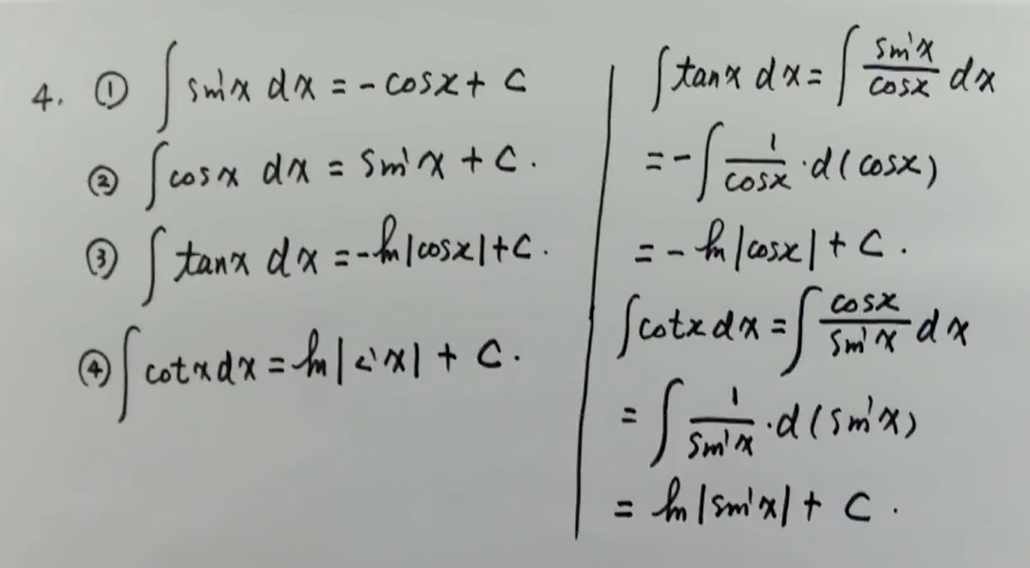 4. ① ∫ sin x dx = -cosx + C
② ∫ cosx dx = sin x + C.
③ ∫ tanx dx = -ln|cosx| + C.
④ ∫ cotx dx = ln| x| + C.
∫ tanx dx = ∫ \frac{sin x}{cosx} dx
= -∫ \frac{1}{cosx} · d(cosx)
= -ln|cosx| + C.
∫ cotx dx = ∫ \frac{cosx}{sin x} dx
= ∫ \frac{1}{sin x} · d(sin x)
= ln|sin x| + C.